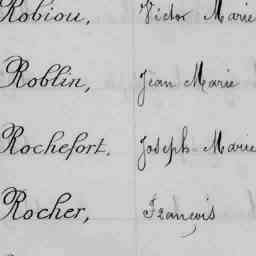 Robiou, Victor Marie
Roblin, Jean Marie
Rochefort, Joseph Marie
Rocher, François